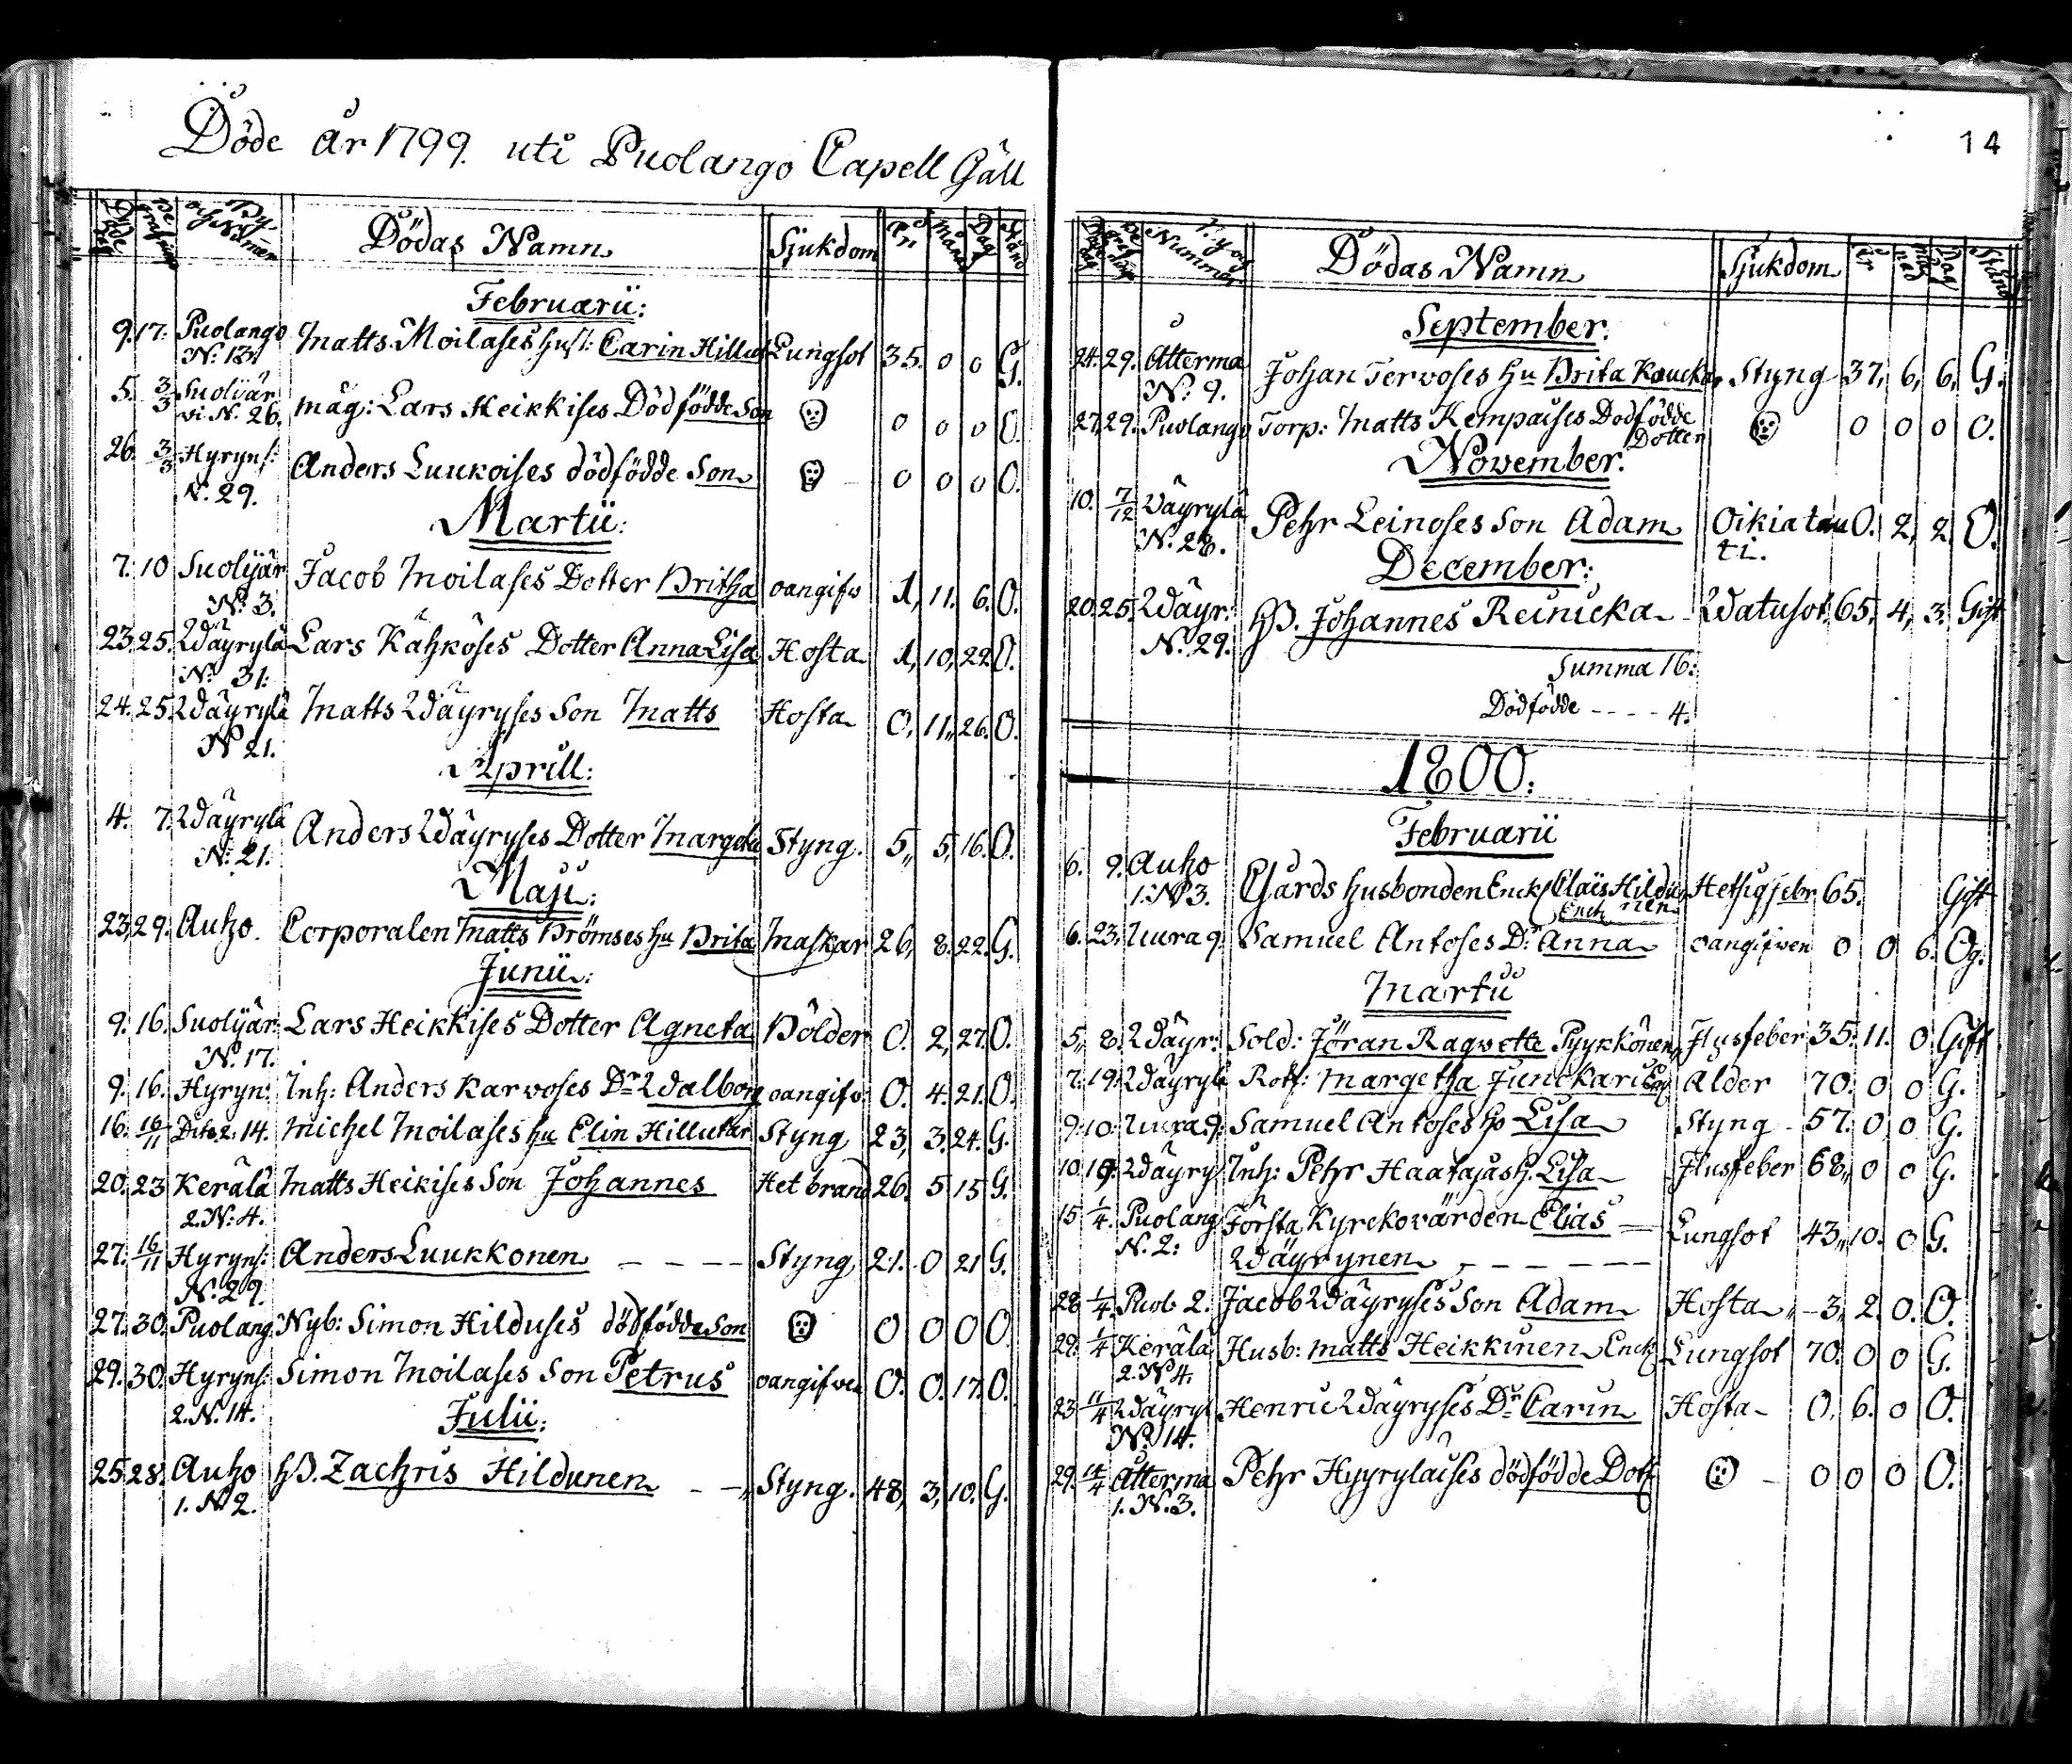 Döde År 1799. uti Puolango Capell Gäll
Dödas Namn Sjukdom År Månad Dag Stånd
Februarii:
9. 17. Puolango Matts Moilases Hust: Carin Hillu Lungsot 35. 0 0 G.
N: 13.
5. 3/3 Suolijär måg: Lars Heikkises Dödfödde Son 0 0 0 O.
vi. N. 26.
26. 3/3 Hyryns: Anders Luukoises dödfödde Son 0 0 0 O.
N. 29.
Martii:
7. 10 Suolijär Jacob Moilases Dotter Britha oangifv 1, 11. 6. O.
N: 3.
23. 25. Wäyrylä Lars Kähköses Dotter Anna Lisa Hosta 1, 10, 22. O.
N: 31:
24. 25. Wäyrylä Matts Wäyryses Son Matts Hosta 0, 11,, 26. O.
N 21.
Aprill:
4. 7. Wäyrylä Anders Wäyryses Dotter Margeta Styng. 5,, 5, 16. O.
N: 21.
Maji:
23. 29. Auho. Corporalen Matts Brömses hu Brita Maskar 26, 8. 22. G.
Junii:
9. 16. Suolijär Lars Heikkises Dotter Agneta Bölder 0. 2, 27. O.
N. 17.
9. 16. Hyryn: Inh: Anders Karvoses Dr Walborg oangifv. 0. 4. 21. O.
16. 16/11 Dito 2: 14. Michel Moilases hu Elin Hillutar Styng 23, 3. 24. G.
20. 23 Kerälä Matts Heikises Son Johannes Het brand 26. 5 15 G.
2. N: 4.
27. 16/11 Hyryns: Anders Luukkonen Styng 21. 0 21 G.
N. 29.
27. 30. Puolang. Nyb: Simon Hilduses dödfödde Son 0 0 0 O.
29. 30. Hyryns: Simon Moilases Son Petrus oangifven 0. 0. 17. O.
2. N. 14.
Julii:
25. 28. Auho HB. Zachris Hildunen Styng. 48, 3, 10. G.
1. N 2.
14
By og Nummer Dödas Namn Sjukdom År Månad Dag Stånd
September.
24. 29. Atterma Johan Tervoses hu Brita Kaucka Styng 37, 6, 6, G.
N: 9.
27. 29. Puolango Torp: Matts Kempaises Dodfödde 0 0 0 O.
Dotter
November.
10. 7/12 Wäyrylä Pehr Leinoses Son Adam Oikia tau 0. 2, 2. O.
N. 28. ti.
December:
20. 25. Wäyr: HB. Johannes Reinicka Watusot. 65. 4, 3. Gift
N. 29.
Summa 16:
Dödfödde - - - - 4.
1800.
Februarii
6. 9. Auho Gårds husbonden Enck Claës Hildu Hetsig febr 65. Gift
1. N 3. Enck nen
6. 23. Uura 9. Samuel Antoses Dr Anna oangifven 0 0 6. Og.
Martii
5,, 8. Wäyr: Sold: Jöran Ragvette Pyykkönen Flusfeber 35. 11. 0 Gift
7. 19. Wäyrylä Rotf: Margetha Junckari Alder 70. 0 0 G.
9. 10. Uura 9. Samuel Antoses ho Lisa Styng 57. 0, 0 G.
10. 19. Wäyry. Inh: Pehr Haatajas h. Lisa Flusfeber 68,, 0 0 G.
15 1/4. Puolang Första Kyrckovärden Elias Lungsot 43,, 10. 0 G.
N. 2: Wäyrynen
28 1/4. Puol. 2. Jacob Wäyryses Son Adam Hosta 3, 2. 0. O.
29. 1/4 Kerälä Husb: Matts Heikkinen Enck Lungsot 70. 0 0 G.
2. N 4.
23 11/4 Wäyryl Henric Wäyryses Dr Carin Hosta 0, 6. 0 O.
N. 14.
29. 14/4 Atterma Pehr Hyyryläises dödfödde Dott 0 0 0 O.
1. N. 3.